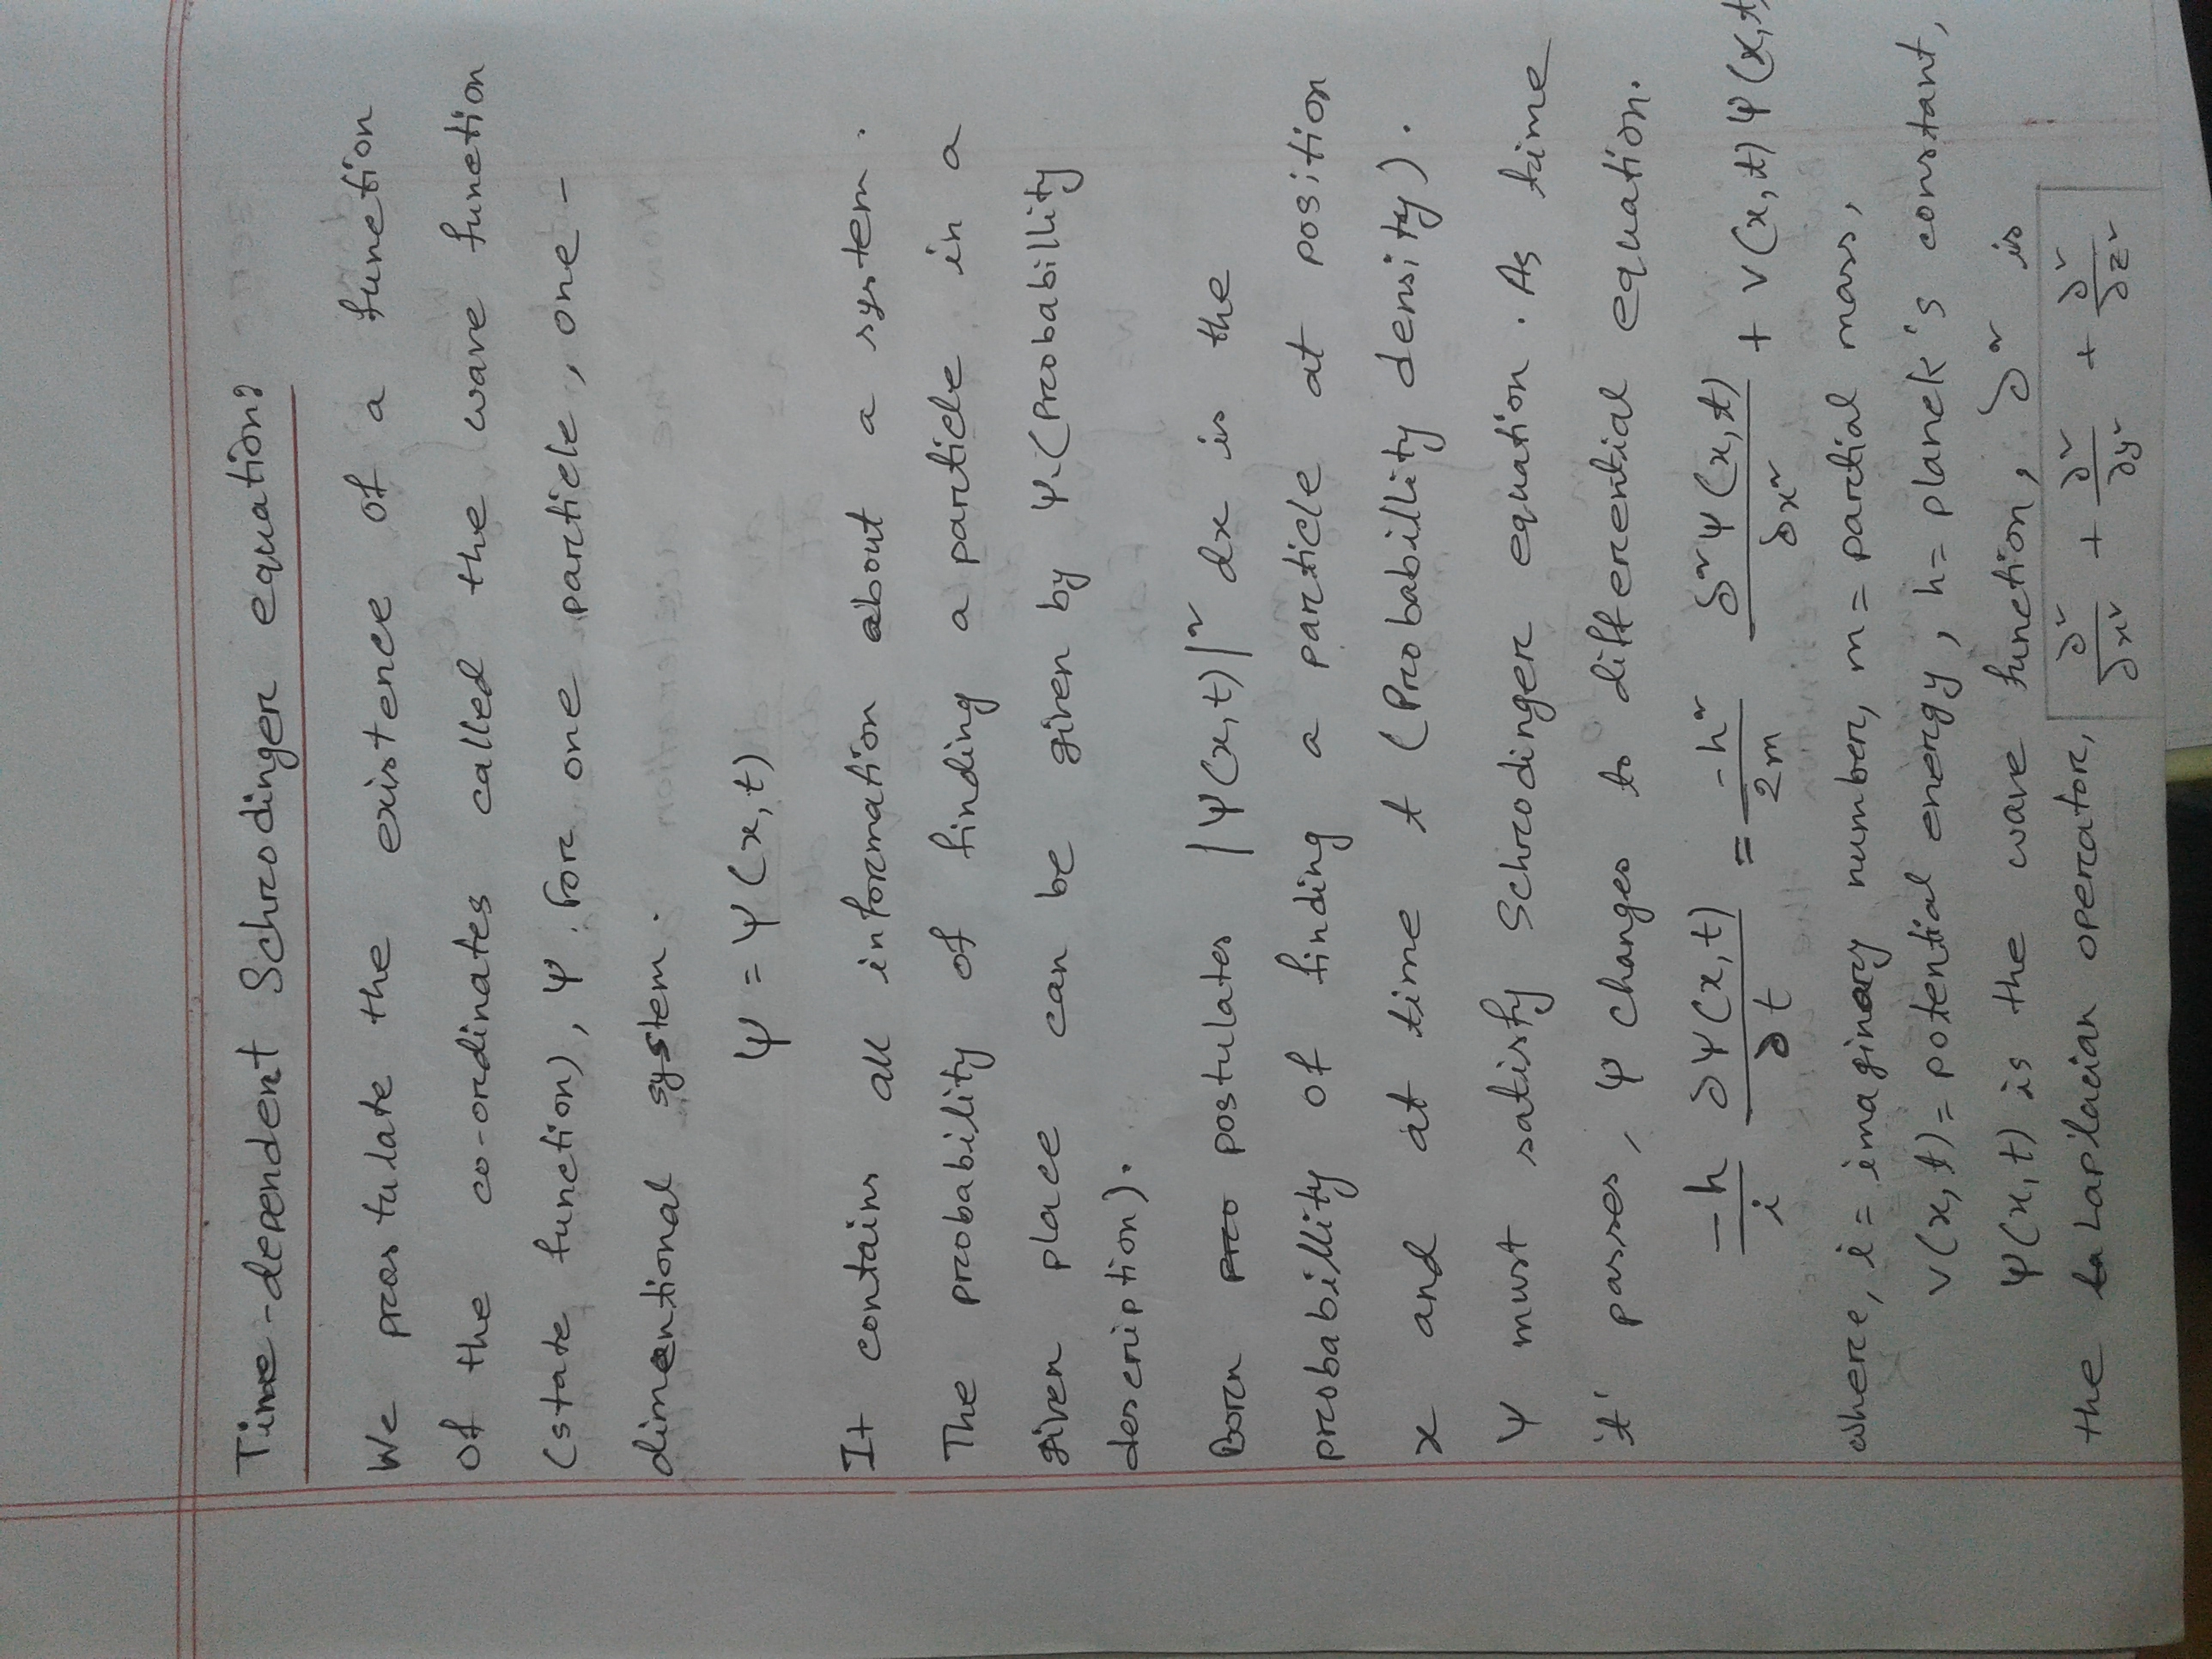 Time-dependent Schrodinger equation:
We prostulate the existence of a function
of the co-ordinates called the wave function
(state function), Ψ. For one particle, one-
dimentional system.
Ψ = Ψ(x,t)
It contains all information about a system.
The probability of finding a particle in a
given place can be given by Ψ. (Probabillity
description).
Born pro postulates |Ψ(x,t)|² dx is the
probabillity of finding a particle at position
x and at time t (Probabillity density).
Ψ must satisfy Schrodinger equation. As time
't' passes, Ψ changes to differential equation.
-h/i ∂Ψ(x,t)/∂t = -h²/2m ∂²Ψ(x,t)/∂x² + V(x,t) Ψ(x,t
where, i = imaginary number, m = partial mass,
V(x,t) = potential energy, h = planck's constant,
Ψ(x,t) is the wave function, ∂² is
the La Laplacian operator, ∂²/∂x² + ∂²/∂y² + ∂²/∂z²